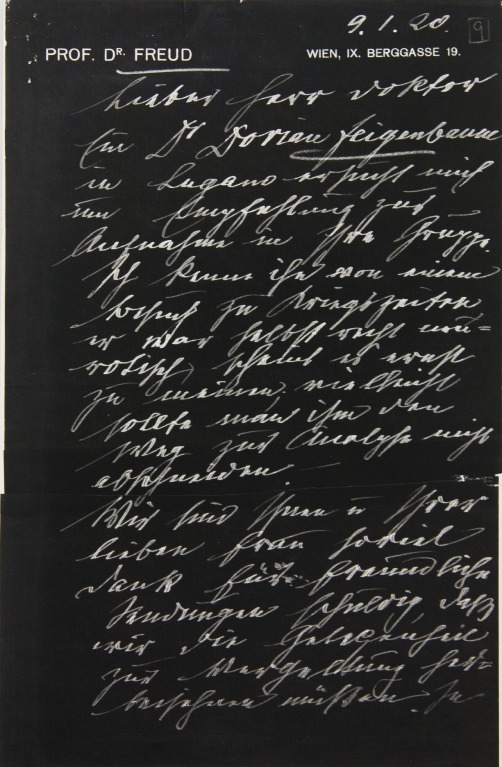 9.1.20.
9
PROF. DR. FREUD
WIEN, IX. BERGGASSE 19.
Lieber Herr Doktor
Ein Dr Dorian Feigenbaum
in Lugano ersucht mich
um Empfehlung zur
Aufnahme in Ihre Gruppe.
Ich kenne ihn von einem
Besuch zu Kriegszeiten
er war selbst recht neu=
rotisch, scheint es ernst
zu meinen. vielleicht
sollte man ihm den
Weg zur Analyse nicht
abschneiden.
Wir sind Ihnen u Ihrer
lieben Frau soviel
Dank für freundliche
Sendungen schuldig, daß
wir die Gelegenheit
zur Vergeltung her=
beisehnen müßen. In